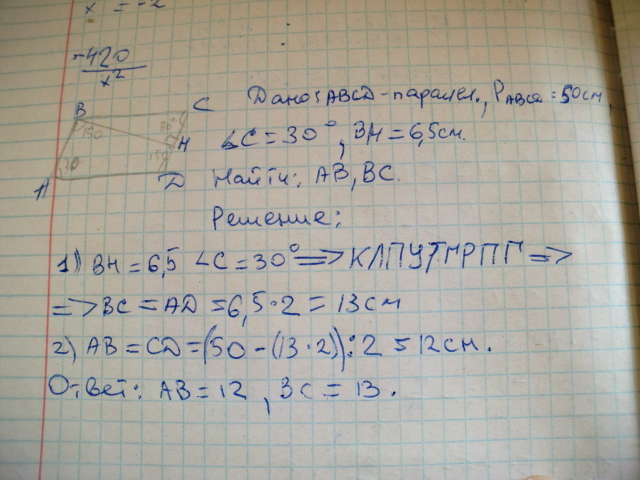 x = -2
-420
x²
B C Дано: ABCD-паралел., PABCD = 50см,
H ∠C = 30°, BH = 6,5см.
A D Найти: AB, BC.
Решение:
1) BH = 6,5 ∠C = 30° => КЛПУТНРПГ =>
=> BC = AD = 6,5 · 2 = 13 см
2) AB = CD = (50 - (13 · 2)) : 2 = 12см.
Ответ: AB = 12, BC = 13.